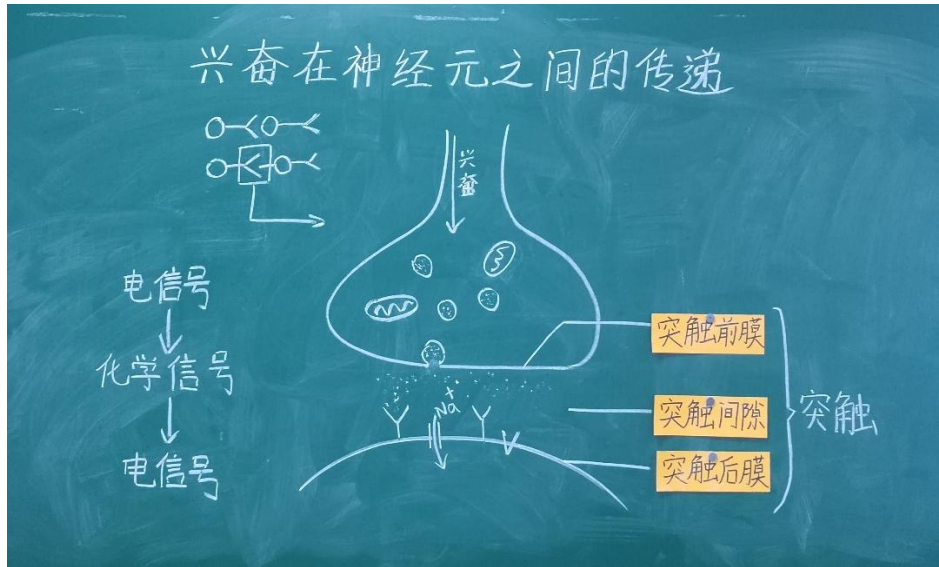 兴奋在神经元之间的传递
兴奋
电信号
化学信号
电信号
Na+
突触前膜
突触间隙
突触后膜
突触